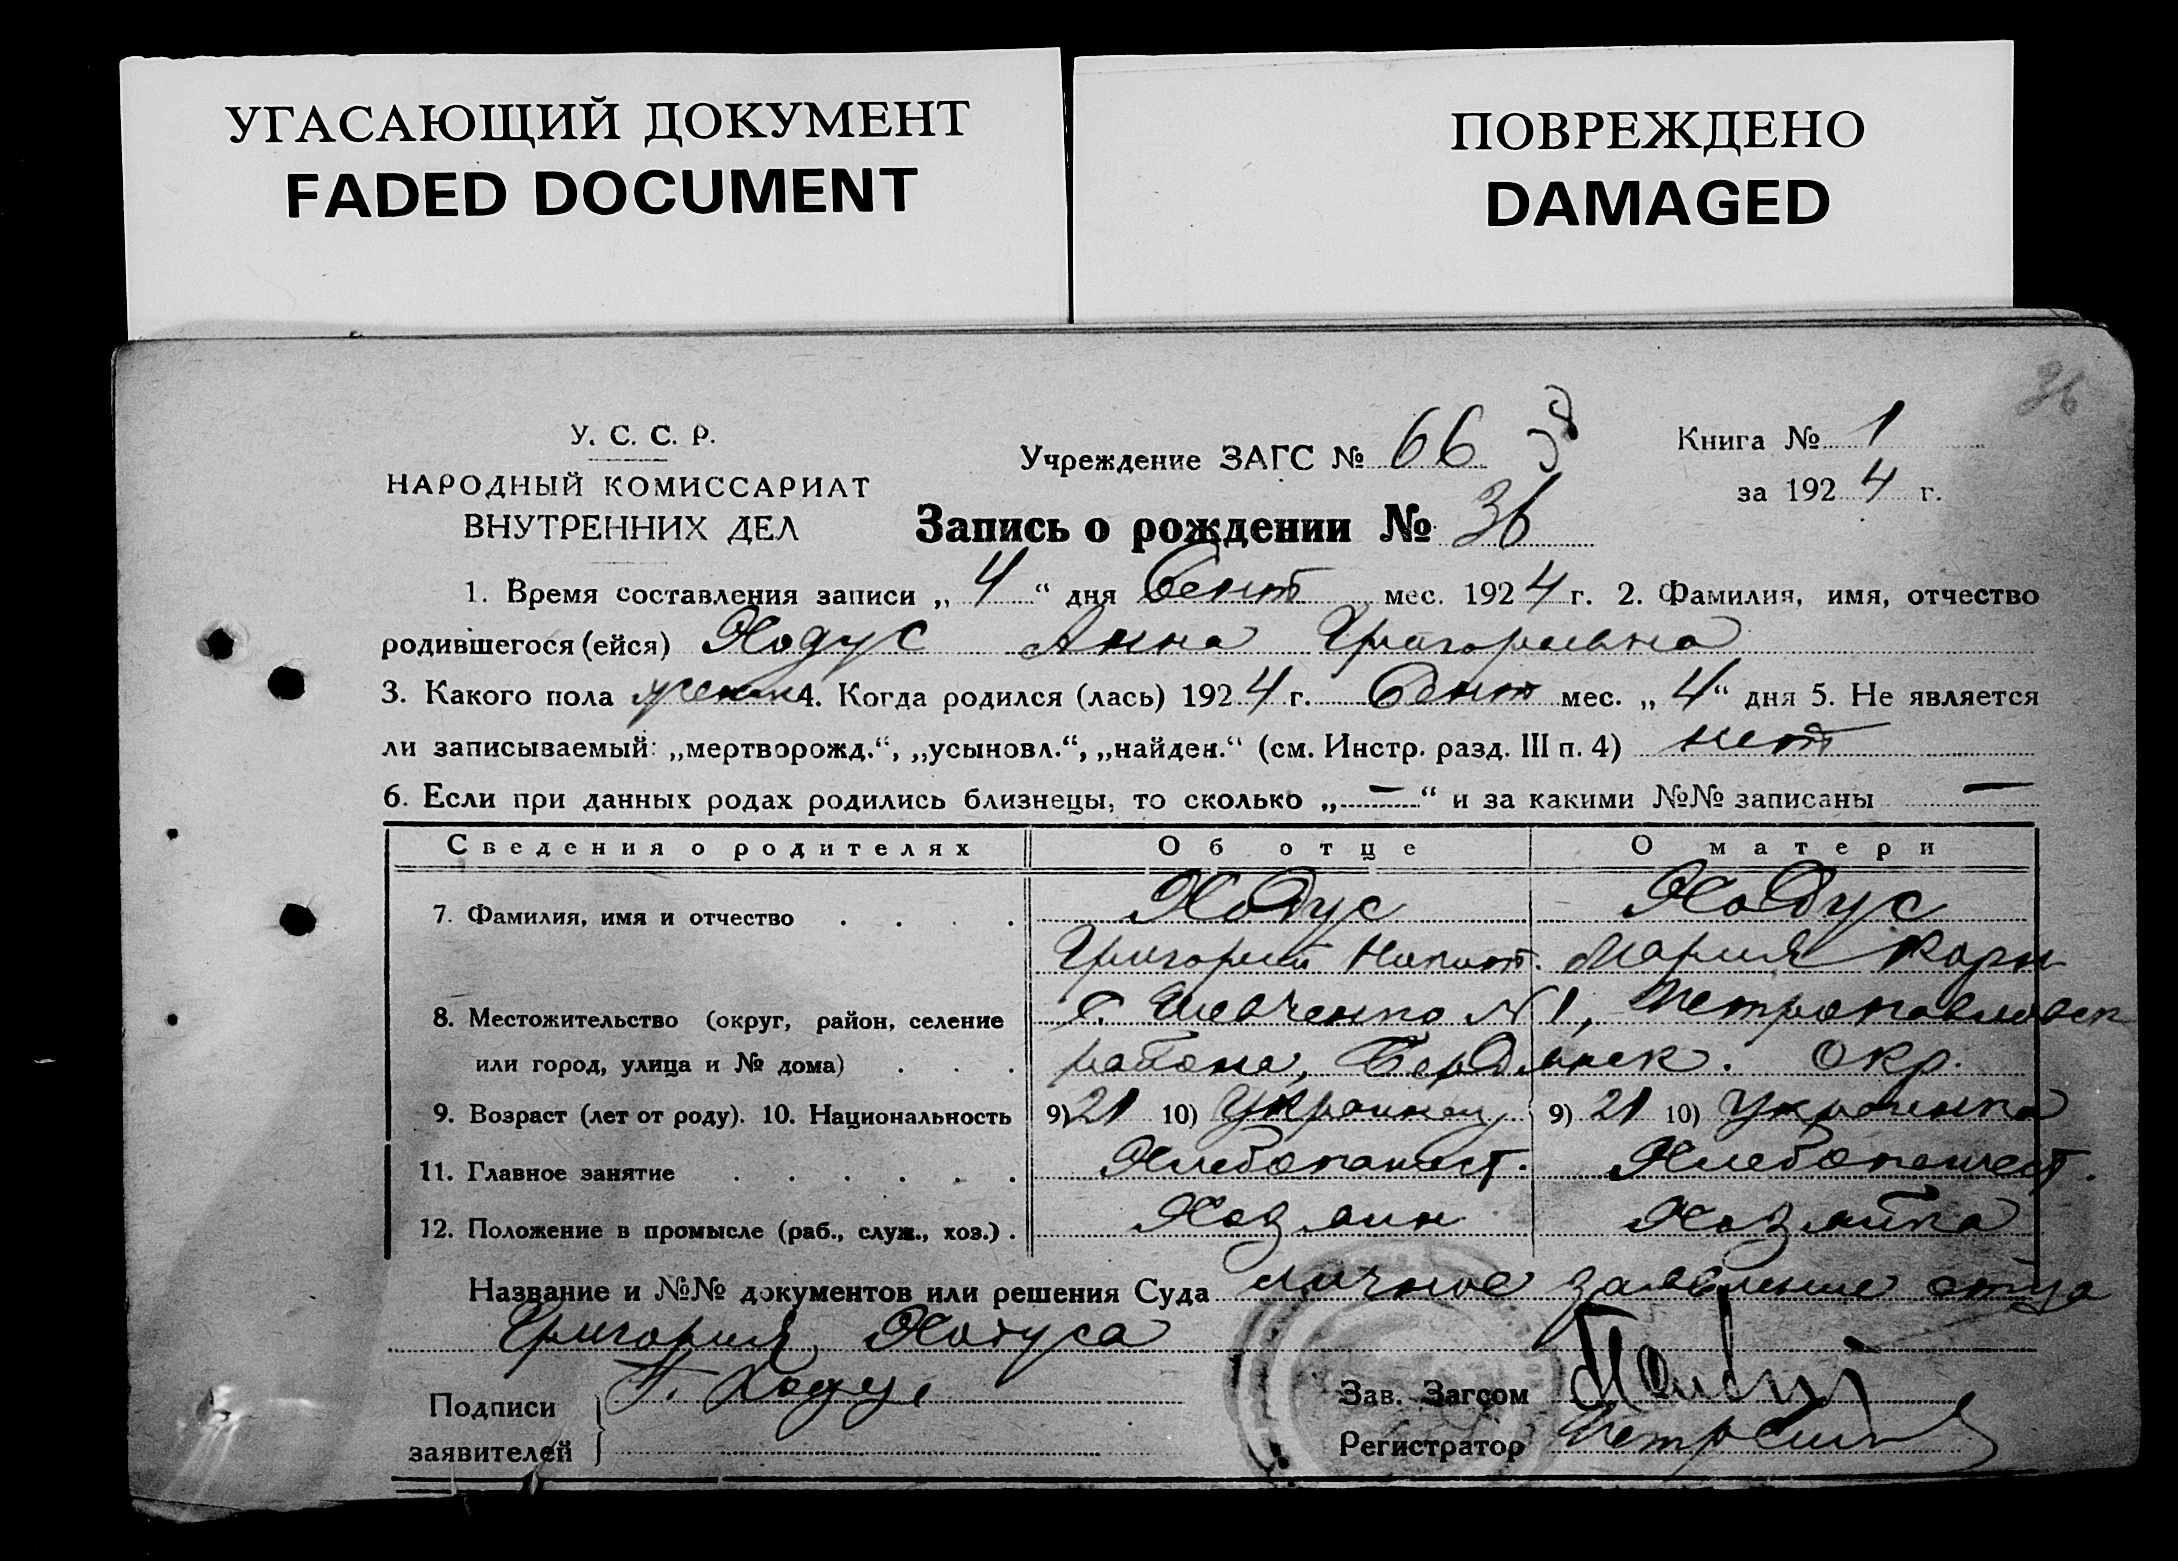 УГАСАЮЩИЙ ДОКУМЕНТ
FADED DOCUMENT
ПОВРЕЖДЕНО
DAMAGED
36
У. С. С. Р.
НАРОДНЫЙ КОМИССАРИАТ
ВНУТРЕННИХ ДЕЛ
Учреждение ЗАГС № 66
Книга № 1
за 1924 г.
Запись о рождении № 36
1. Время составления записи „4“ дня Сент мес. 1924 г. 2. Фамилия, имя, отчество
родившегося (ейся) Ходус Анна Григорьевна
3. Какого пола женск 4. Когда родился (лась) 1924 г. Сент мес. „4“ дня 5. Не является
ли записываемый: „мертворожд.“, „усыновл.“, „найден.“ (см. Инстр. разд. III п. 4) нет
6. Если при данных родах родились близнецы, то сколько „—“ и за какими №№ записаны —
Сведения о родителях Об отце О матери
7. Фамилия, имя и отчество Ходус Ходус
Григорий Мария Карп
8. Местожительство (округ, район, селение С. Шевченко № 1, Петропавловск
или город, улица и № дома) района, Бердянск. окр.
9. Возраст (лет от роду). 10. Национальность 9) 21 10) Украинец 9) 21 10) Украинка
11. Главное занятие Хлебопашест. Хлебопашест.
12. Положение в промысле (раб., служ., хоз.) Хозяин Хозяйка
Название и №№ документов или решения Суда личное заявление отца
Григория Ходуса
Подписи
заявителей
Г. Ходус
Зав. Загсом
Регистратор